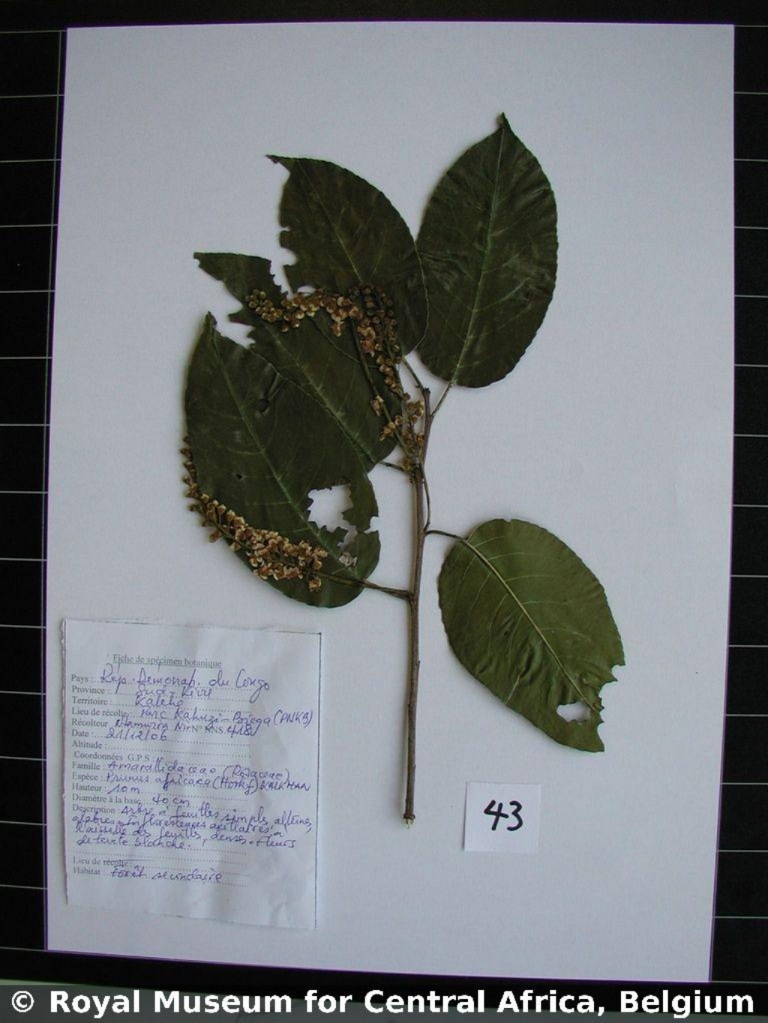 Fiche de spécimen botanique
Pays : Rép. Démocrat. du Congo
Province : Sud-Kivu
Territoire : Kalehe
Lieu de récolte : Parc Kahuzi-Biega (PNKB)
Récolteur N° NNS 418
Date : 21/12/06
Altitude :
Coordonnées G.P.S :
Famille : Amarallidaceae (Rosaceae)
Espèce : Prunus africana (Hook f) KALKMAN
Hauteur : 10m
Diamètre à la base : 40 cm
Description : Arbre à feuilles simples, alternes,
glabres. Inflorescences axillaires à
l'aisselle des feuilles, denses. Fleurs
de teinte blanche.
Lieu de récolte :
Habitat : Forêt secondaire
43
© Royal Museum for Central Africa, Belgium